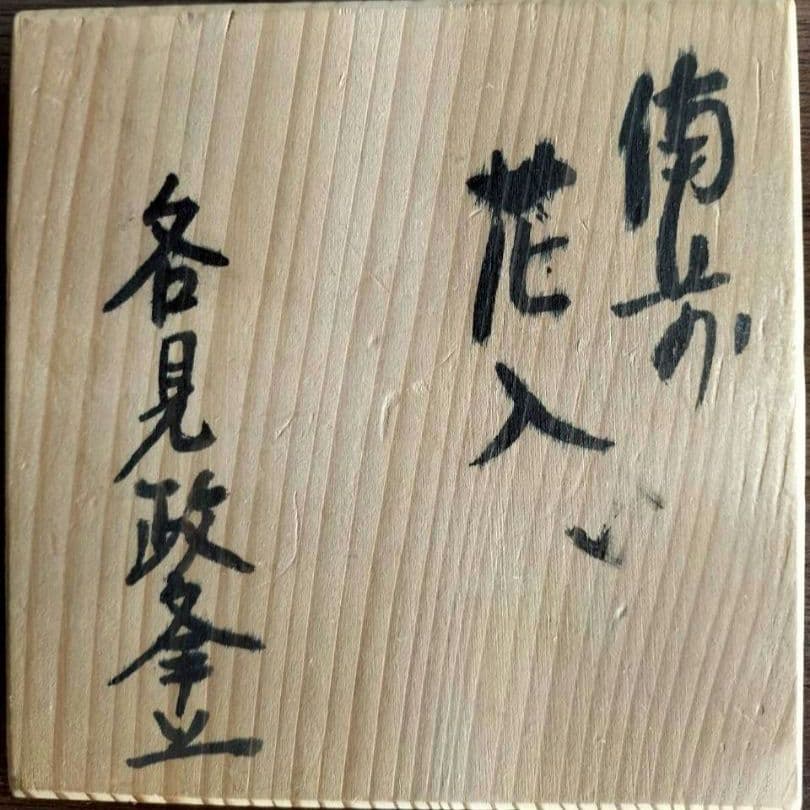 備前
花入
各見政峯上